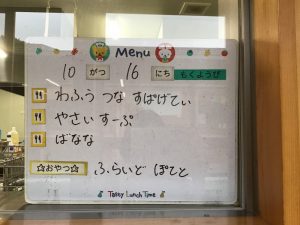 Menu
10 がつ 16 にち もくようび
わふう つな すぱげてぃ
やさい すーぷ
ばなな
☆おやつ☆ ふらいど ぽてと
Tasty Lunch Time